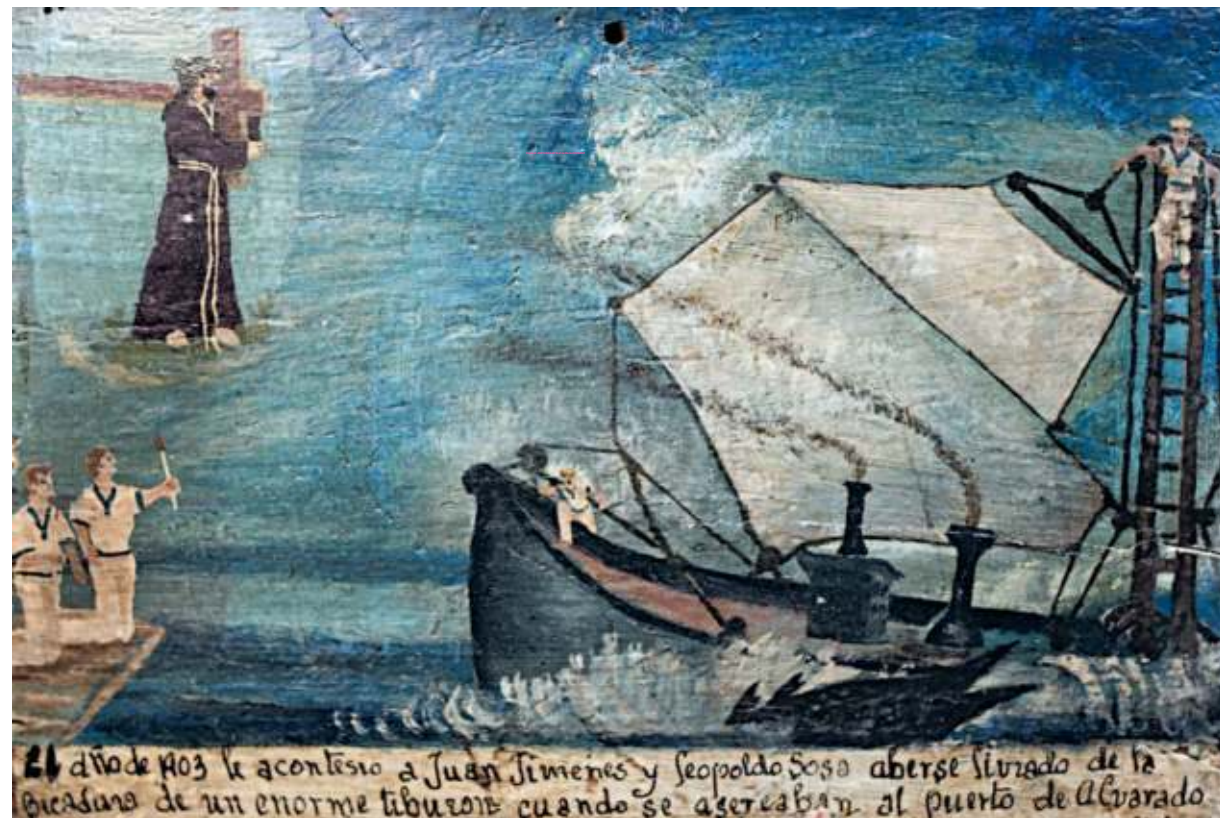 El año de 1903 le acontesio a Juan Jimenes y Leopoldo Sosa aberse livrado de la
picadura de un enorme tiburon cuando se asercaban al puerto de Alvarado